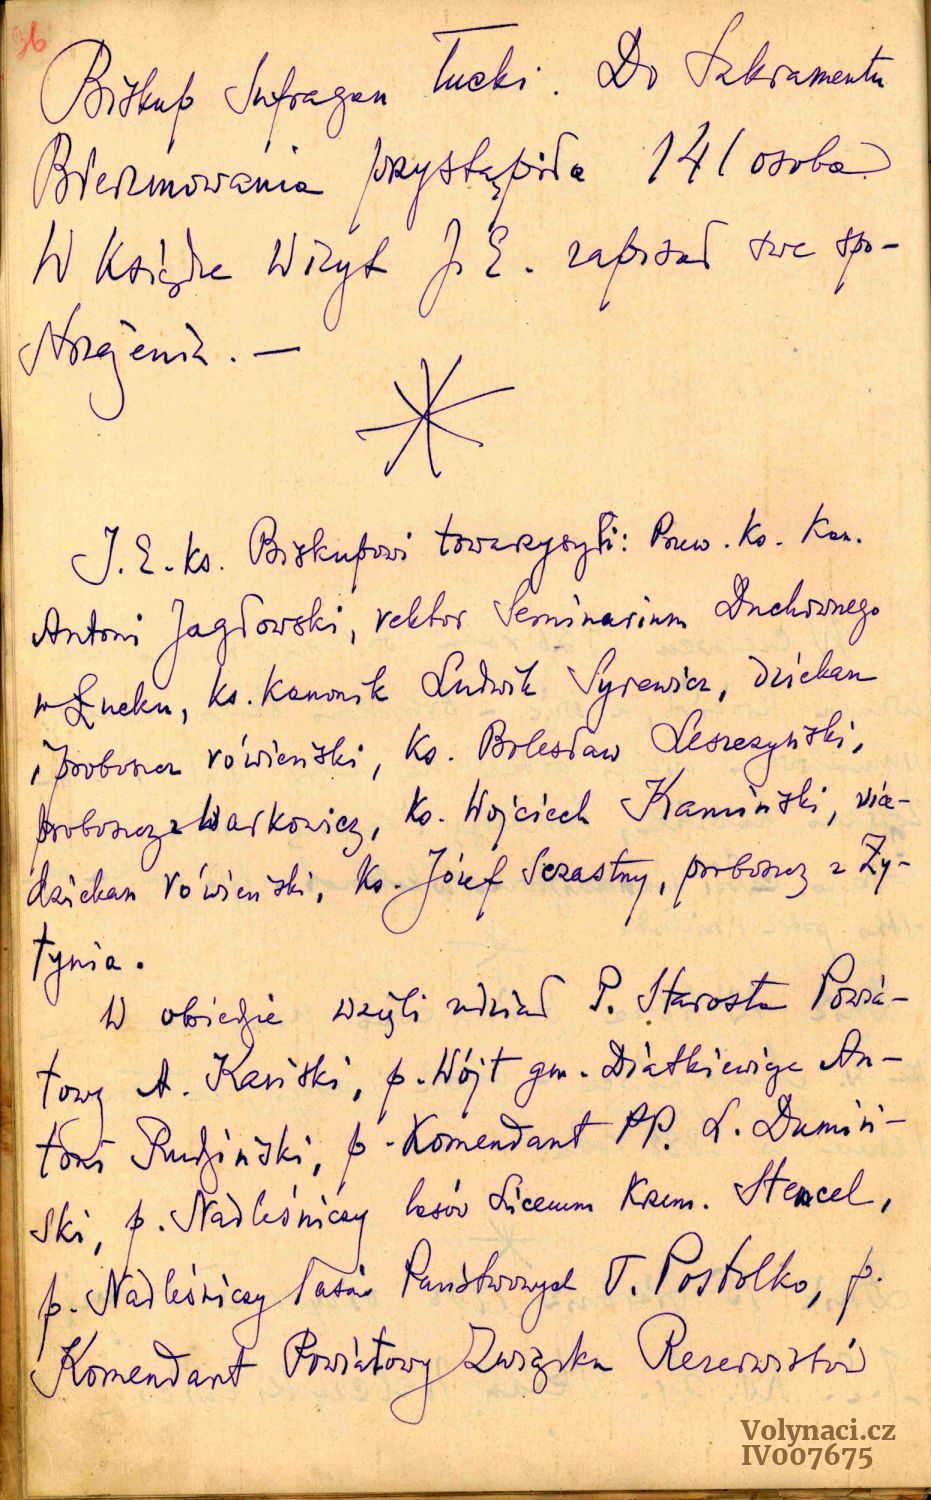 36
Biskup Sufragan Łucki. Do Sakramentu
Bierzmowania przystąpiła 141 osoba.
W Księdze Wizyt J. E. zapisał swe spo-
strzeżenia. —
J. E. Ks. Biskupowi towarzyszyli: Przew. Ks. Kan.
Antoni Jagłowski, rektor Seminarium Duchownego
w Łucku, Ks. Kanonik Ludwik Syrewicz, dziekan
i proboszcz rówieński, Ks. Bolesław Leszczyński,
proboszcz z Warkowicz, Ks. Wojciech Kamiński, vice-
dziekan rówieński, Ks. Józef Szczastny, proboszcz z Ży-
tynia.
W obiedzie wzięli udział P. Starosta Powia-
towy A. Kański, p. Wójt gm. Diatkiewicze An-
toni Rudziński, p. Komendant PP. L. Dumiń-
ski, p. Nadleśniczy lasów Liceum Krzem. Stencel,
p. Nadleśniczy lasów Państwowych T. Postolko, p.
Komendant Powiatowy Związku Rezerwistów
Volynaci.cz
IV007675